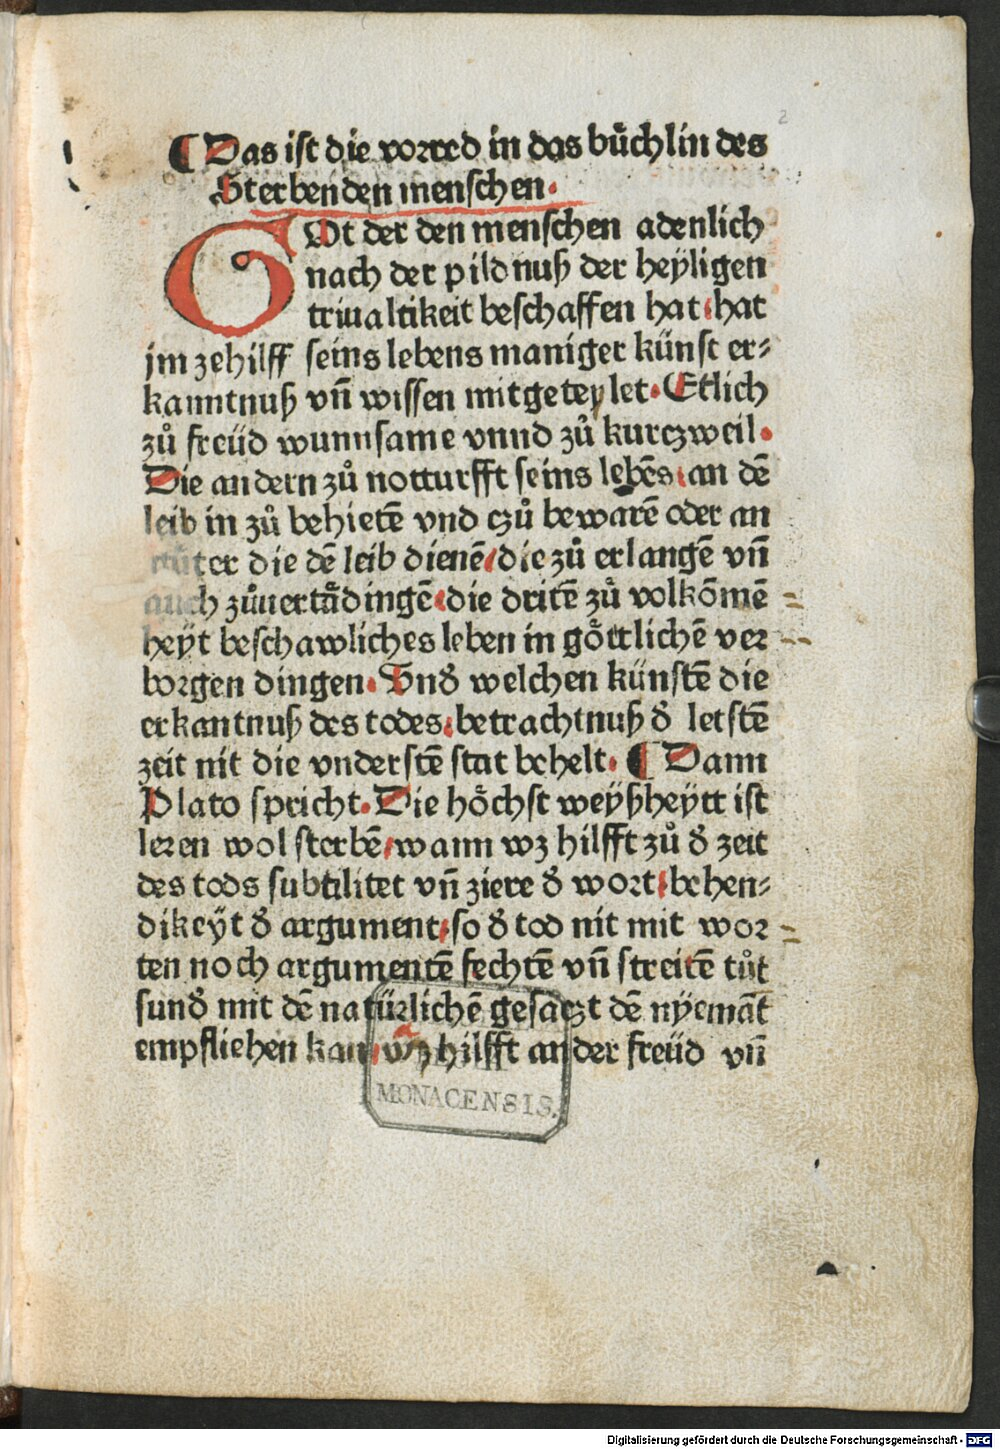 2
¶ Das ist die vorred in das bůchlin des
Sterbenden menschen.
GOt der den menschen adenlich
nach der pildnuß der heÿligen
triualtikeit beschaffen hat hat
jm zehilff seins lebens maniger künst er⸗
kanntnuß vn̄ wissen mitgeteylet. Etlich
zů freüd wunnsame vnnd zů kurczweil.
Die andern zů notturfft seins lebēs an dē
leib in zů behietē vnd czů bewarē oder an
die dē leib dienē die zů erlangē vn̄
auch zůuertådingē die dritē zů volkōmē
heÿt beschawliches leben in gȯttlichē ver
borgen dingen. Vnd̓ welchen künstē die
erkantnuß des todes betrachtnuß d̓ letstē
zeit nit die vnderstē stat behelt. ¶ Dann
Plato spricht. Die hȯchst weÿßheÿtt ist
leren wol sterbē wann wz hilfft zů d̓ zeit
des tods subtilitet vn̄ ziere d̓ wort behen⸗
dikeÿt d̓ argument so d̓ tod nit mit wor
ten noch argumentē fechtē vn̄ streitē tůt
sund̓ mit dē natürlichē gesaczt dē nÿemāt
empfliehen kan wz hilfft an der freüd vn̄
MONACENSIS.
Digitalisierung gefördert durch die Deutsche Forschungsgemeinschaft - DFG